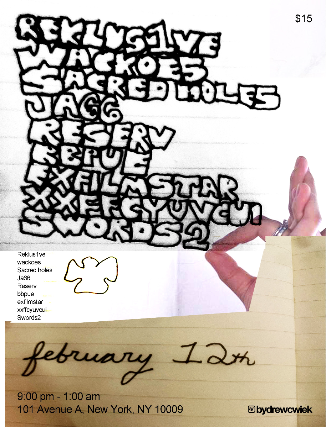 $15
REKLUS1VE
WACKOES
SACRED HOLES
JAGG
RESERV
BBPUE
EXFILMSTAR
XXFFCYUVCUI
SWORDS2
Reklus1ve
wackoes
Sacred holes
Reserv
bbpue
exfilmstar
Swords2
february 12th
9:00 pm - 1:00 am
101 Avenue A, New York, NY 10009
@bydrewcwiek